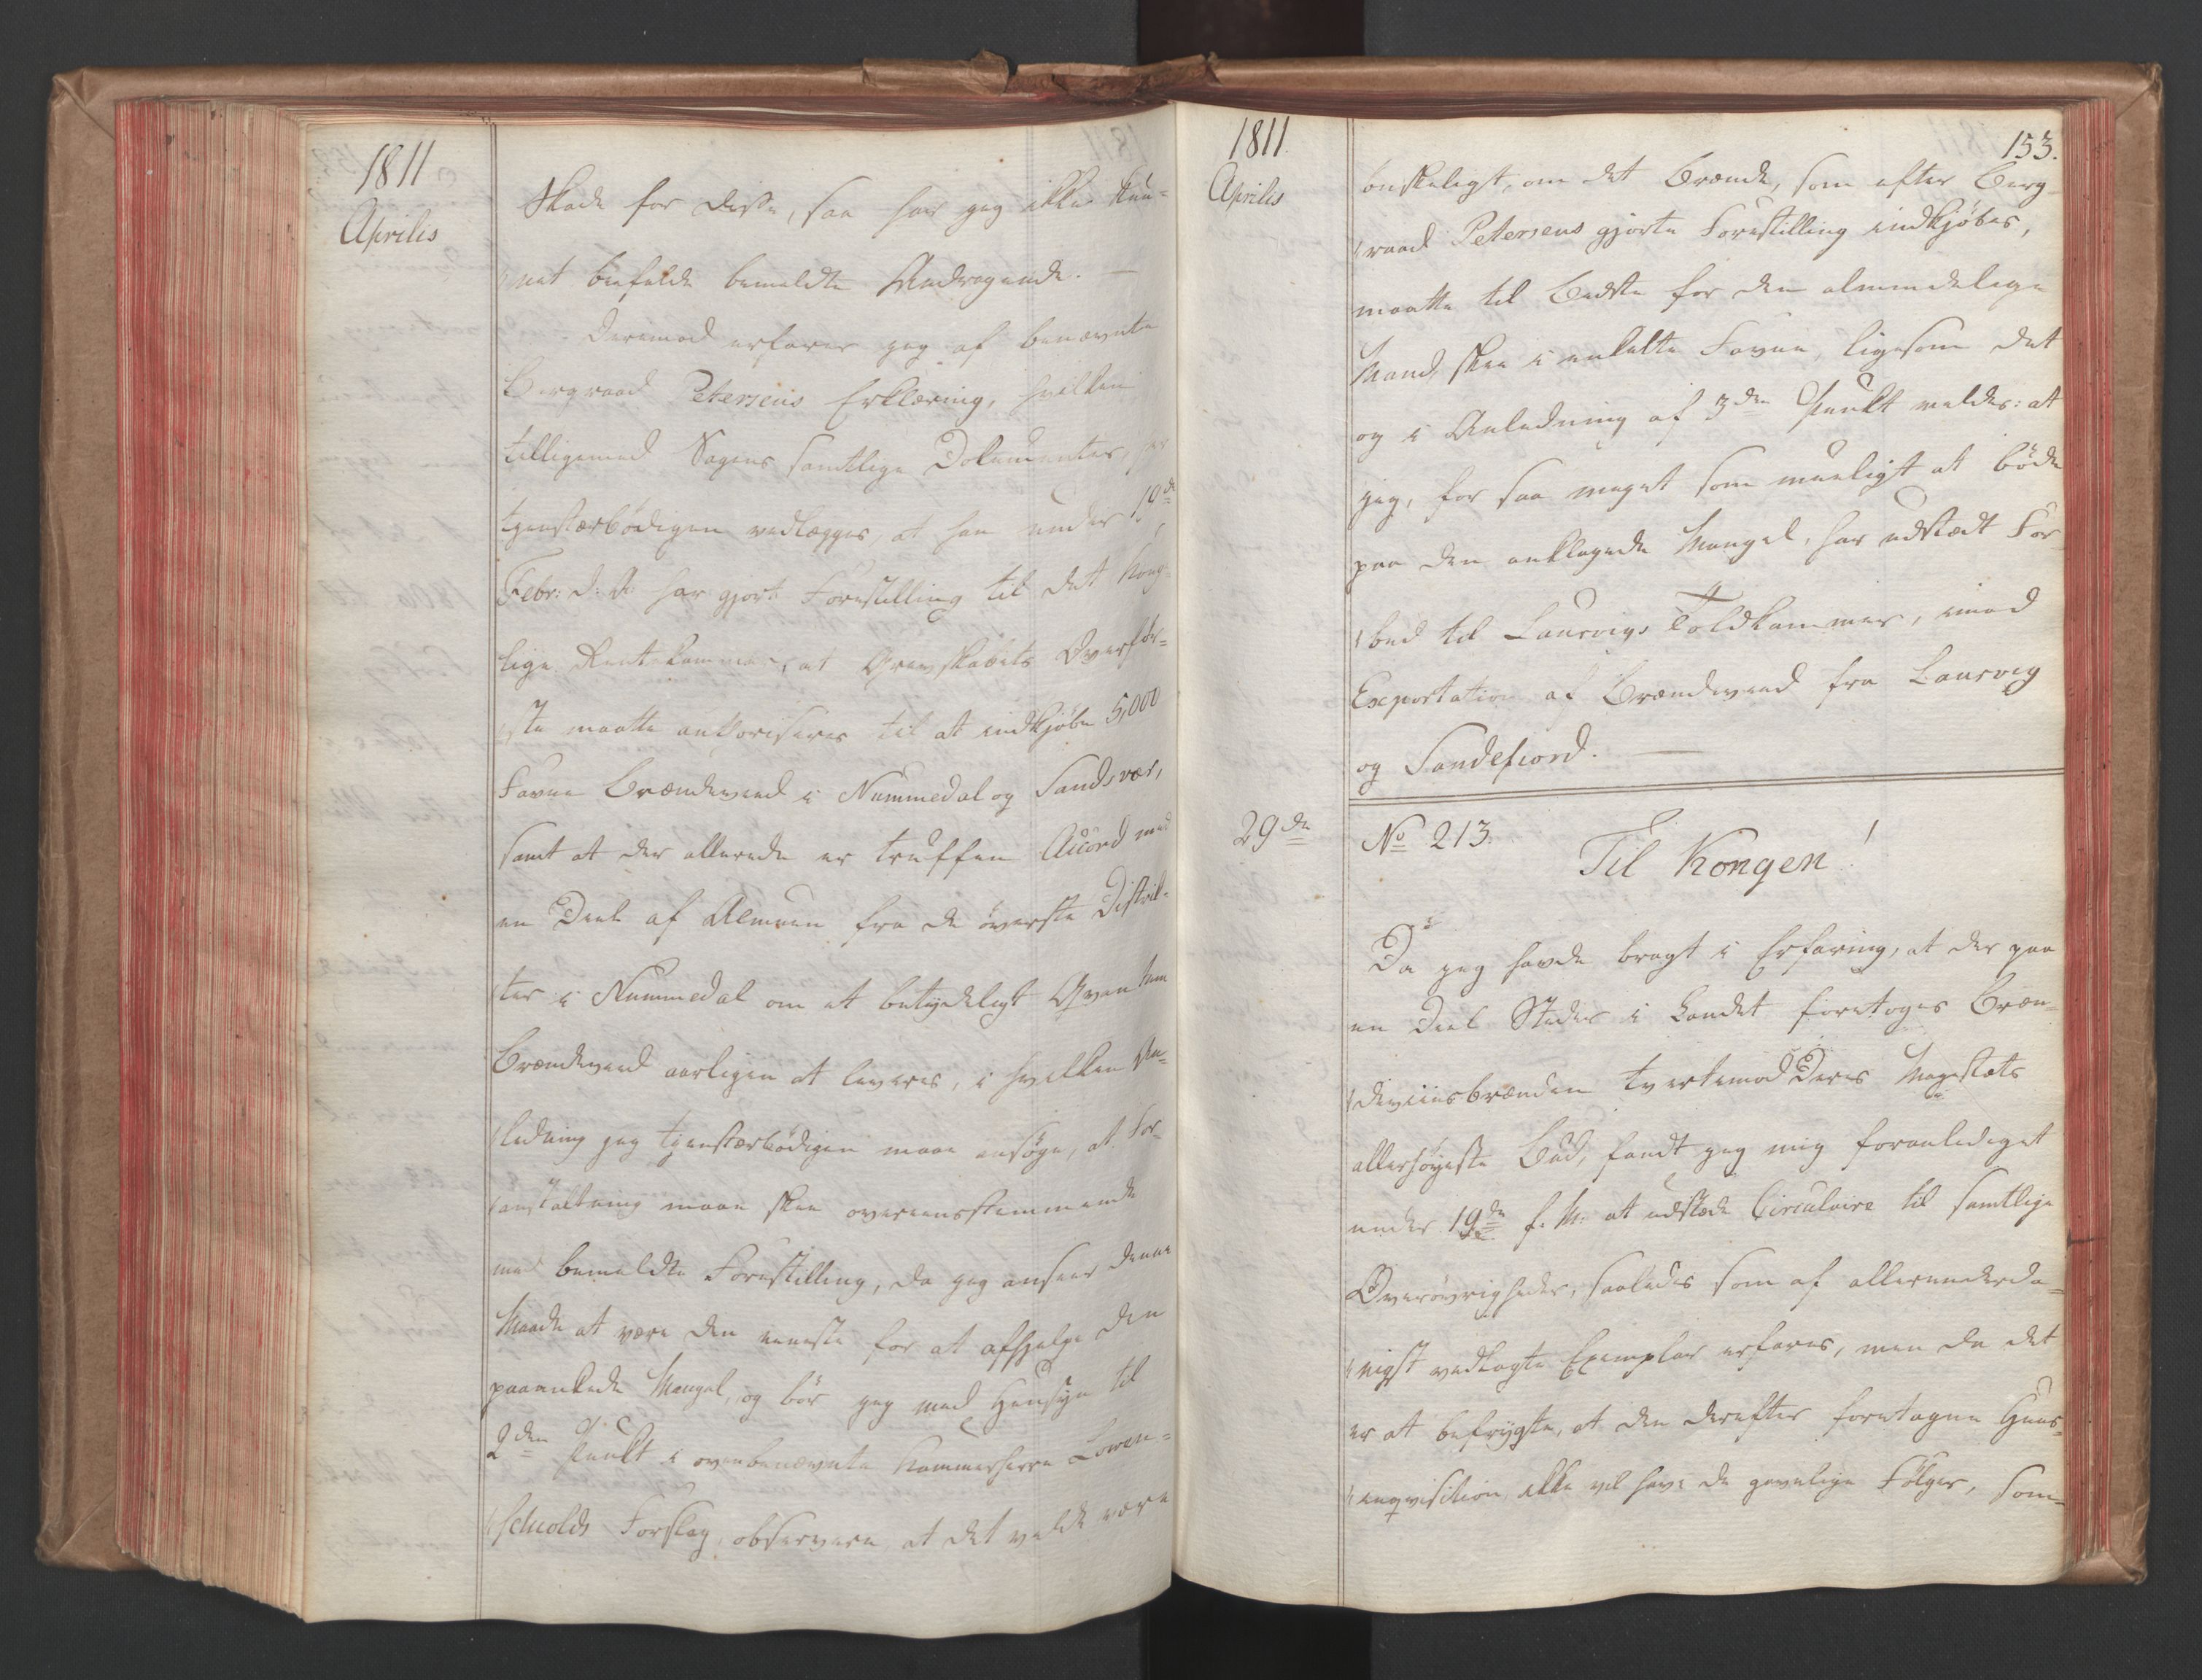 1811
Aprilis
Skade for disse, saa har jeg ikke kun-
net biefalde bemeldte Andragende. —
Derimod erfarer jeg af benævnte
Bergraad Petersens Erklæring, hvilken
tilligemed Sagens samtlige Dokumenter,
tjenstærbødigen vedlægges, at han under 19de
Febr: d. A. har gjort Forestilling til det Konge-
lige Rentekammer, at Grevskabets Overfør-
ste maatte autoriseres til at indkjøbe 5,000
Favne Brændeveed i Nummedal og Sandsvær,
samt at der allerede er truffen Accord med
en Deel af Almuen fra de øverste Distrik-
ter i Nummedal om et betydeligt Qvantum
Brændeveed aarligen at leveres, i hvilken An-
ledning jeg tjenstærbødigen maae ansøge, at For-
anstaltning maae skee overeensstemmende
med bemeldte Forestilling, da jeg anseer denne
Maade at være den eneste for at afhjelpe den
paaankede Mangel, og bør jeg med Hensyn til
2den Punkt i ovenbenævnte Kammerherre Lowen-
schiolds Forslag, observere, at det vilde være
1811.
Aprilis
153.
ønskeligt, om det Brænde, som efter Berg-
raad Petersens gjorte Forestilling indkjøbes,
maatte til Bedste for den almindelige
Mand, skee i enkelte Favne, ligesom det
og i Anledning af 3den Punkt meldes: at
jeg, for saa meget som mueligt at bøde
paa den anklagede Mangel, har udstædt For-
bud til Laurvigs Toldkammer, imod
Exportation af Brændeveed fra Laurvig
og Sandefiord. —
29de
No 213.
Til Kongen!
Da jeg havde bragt i Erfaring, at der paa
en Deel Steder i Landet foretoges Bræn-
deviinsbrænden tvertimod Deres Majestæts
allerhøyeste Bud, fandt jeg mig foranlediget
under 19de f. M. at udstæde Circulaire til samtlige
Overøvrigheder, saaledes som af allerunderda-
nigst vedlagte Exemplar erfares, men da det
er at befrygte, at den derefter foretagne Huus-
inqvisition ikke vil have de gavnlige Følger, som